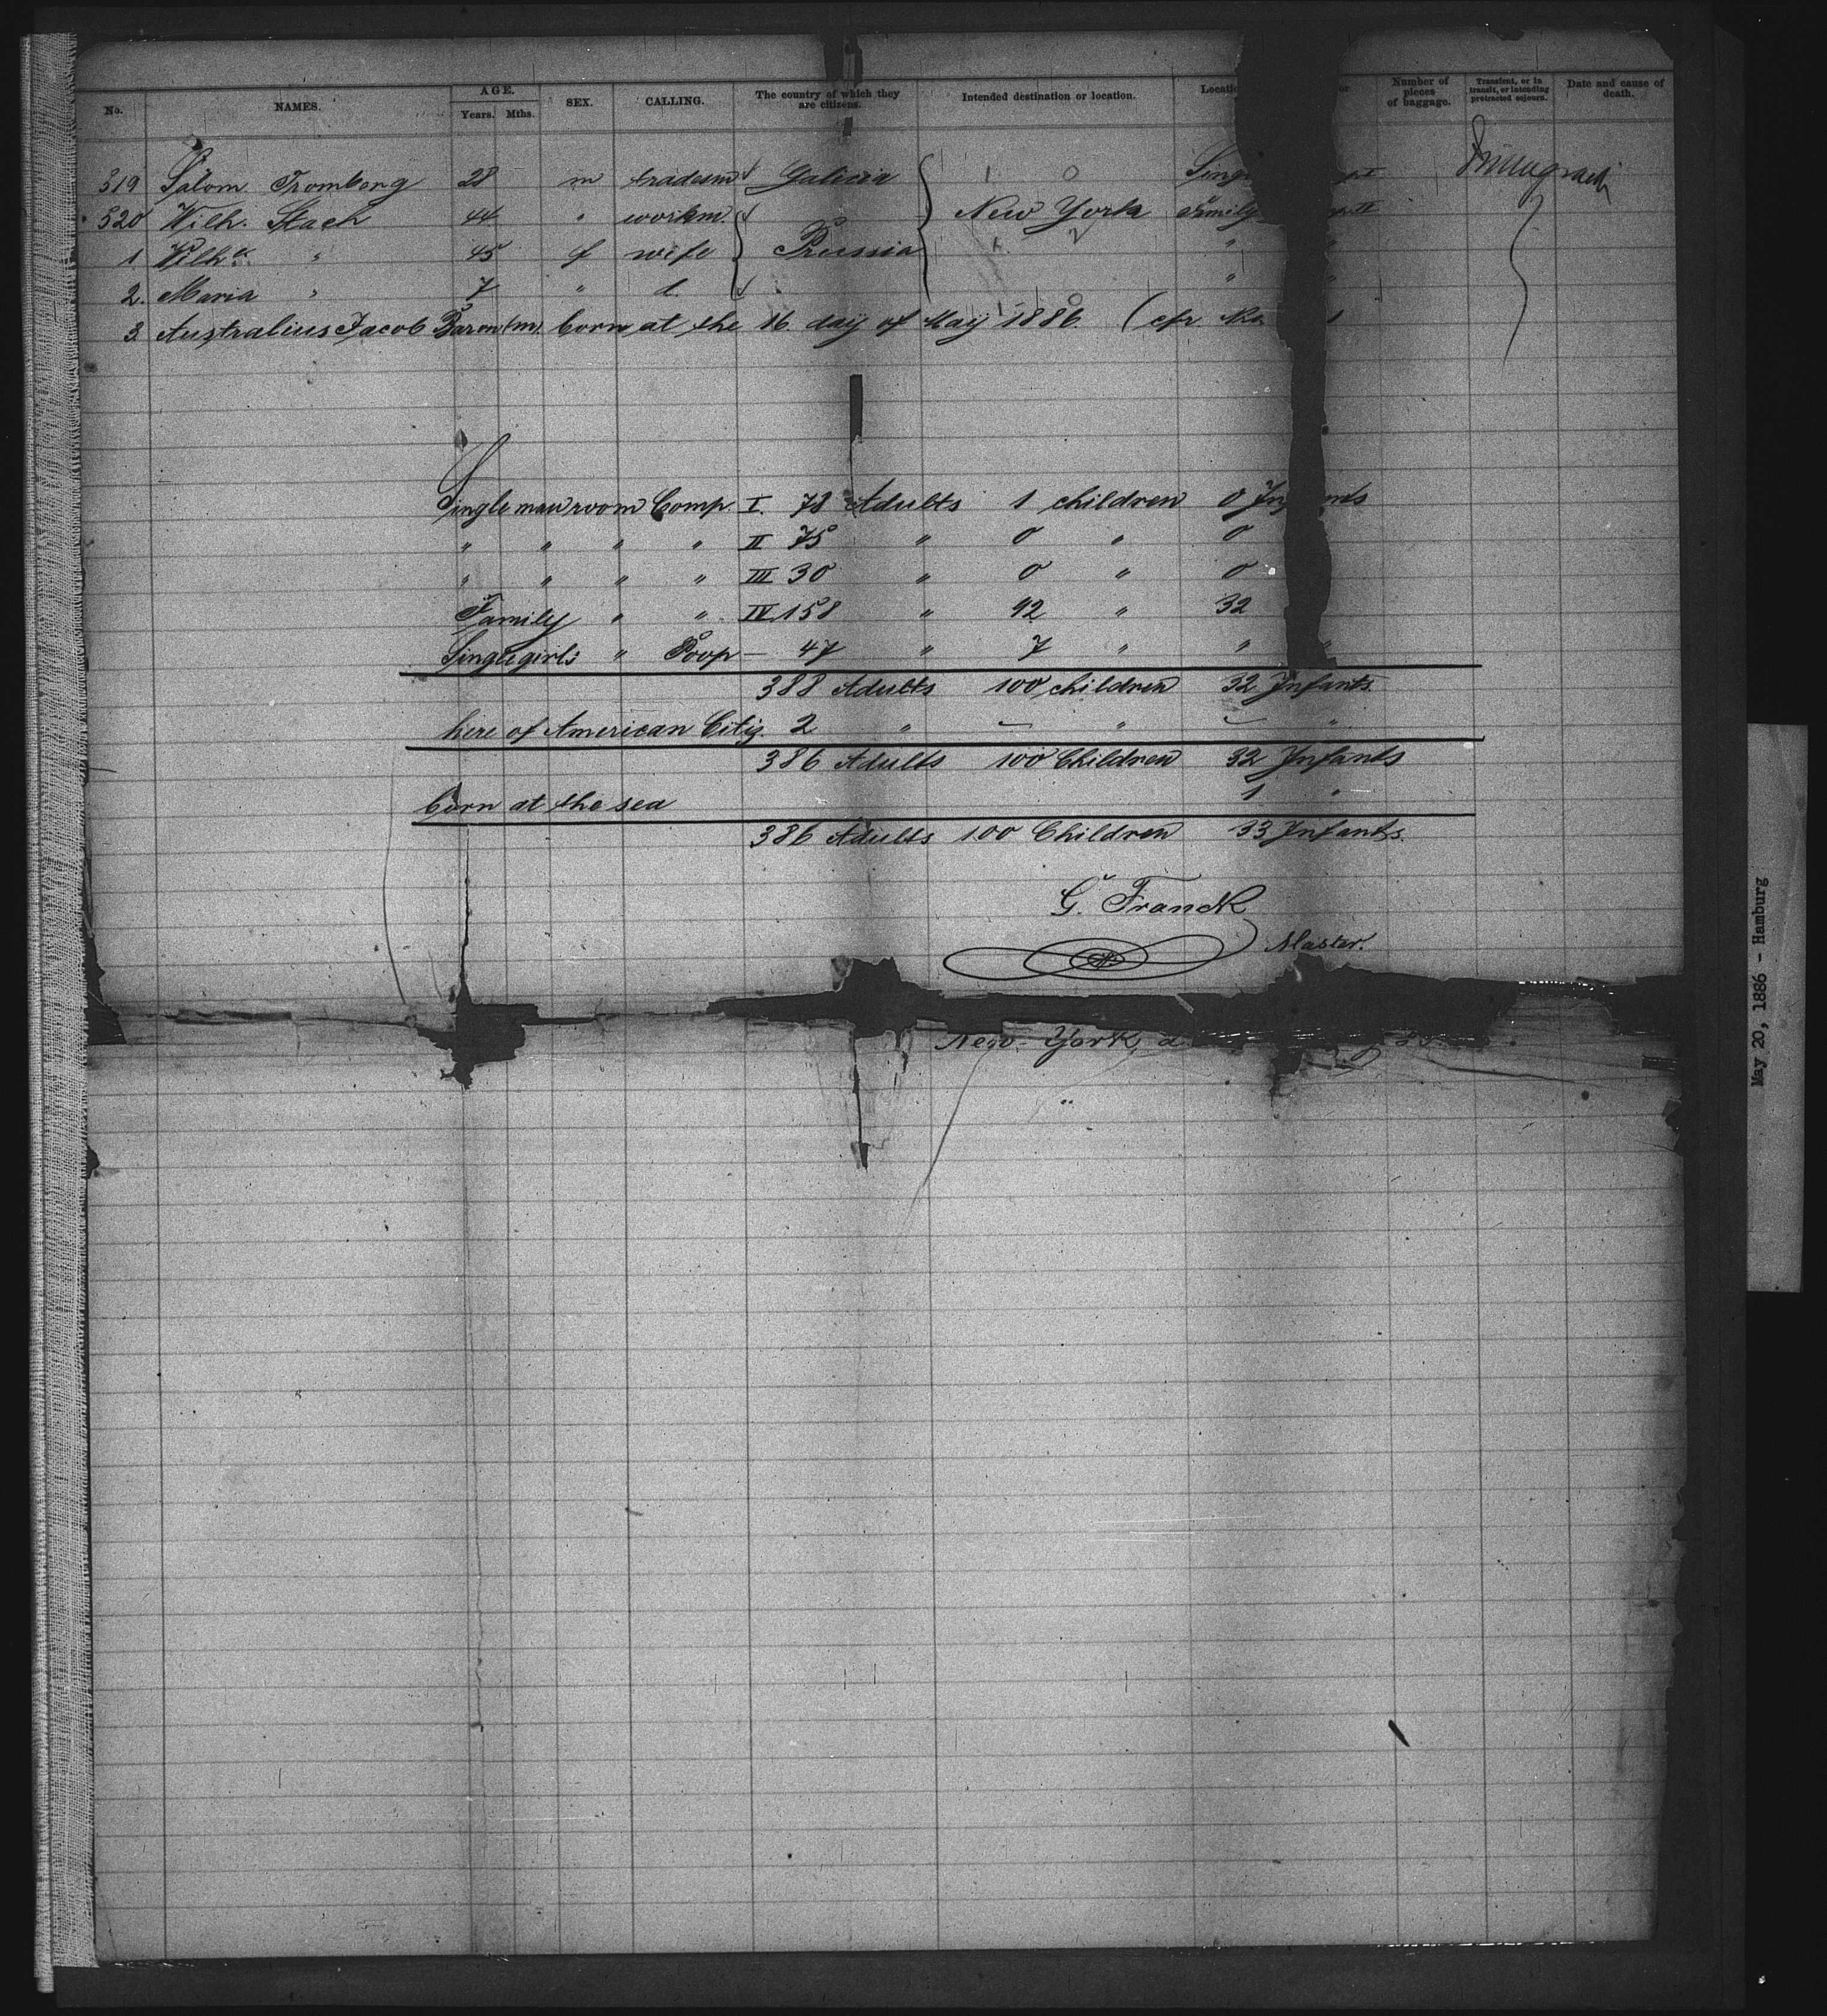 No. NAMES. AGE. Years. Mths. SEX. CALLING. The country of which they are citizens. Intended destination or location. Number of pieces of baggage. Transient, or in transit, or intending protracted sojourn. Date and cause of death.
519 Salom Tromberg 28 m tradesm Galicia
520 Wilh. Stach 44 " workm. New York Family
1 Wilhe " 45 f wife Prussia " "
2. Maria " 7 " d. " "
3. Australius Jacob Baron (m) born at the 16 day of May 1886. (cfr
Single men room Comp. I. 78 Adults 1 children 0
" " " " II 75 " 0 " 0
" " " " III 30 " 0 " 0
Family " " IV 158 " 92 " 32
Single girls " Poop — 47 " 7 " " "
388 Adults 100 children 32 Infants.
here of American Citiz. 2 " — " — "
386 Adults 100 Children 32 Infants
born at the sea 1 "
386 Adults 100 Children 33 Infants.
G. Franck
Master.
New-York,
May 20, 1886 - Hamburg